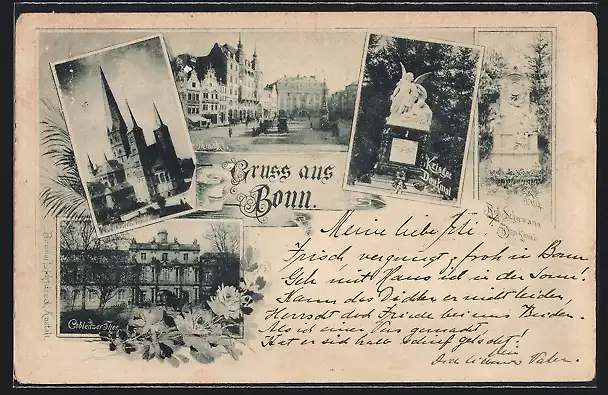 Markt.
Gruss aus
Bonn.
Krieger
Denkmal
Rob. Schumann
Denkmal
Coblenzer Thor
Meine liebe
Frisch, vergnügt, froh in Bonn
Geh mit Hans ich in der Sonn!
Kann das Dichten er nicht leiden,
Herrscht doch Friede bei uns Beiden.
Als ich einen Vers gemacht,
Hat er sich halb schief gelacht!
Dein
Dich liebender Vater.